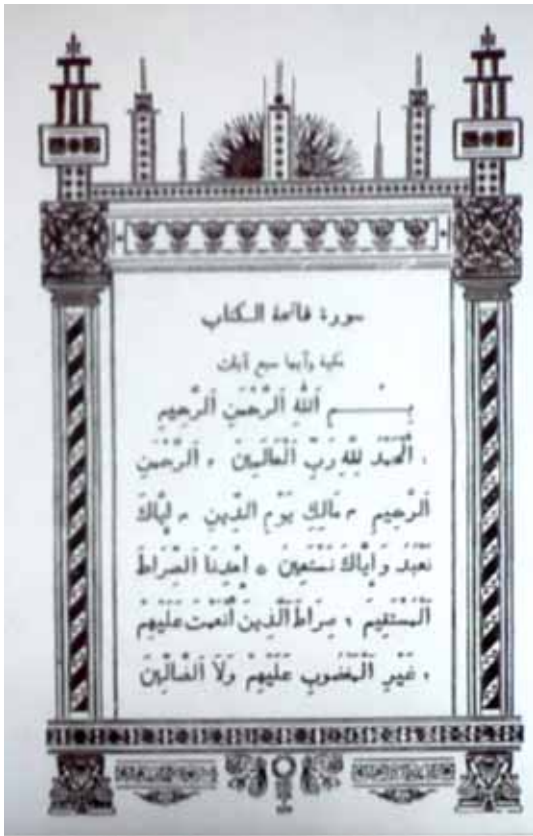 سورة فاتحة الكتاب
مكية وآيها سبع آيات
بِسْمِ اَللّٰهِ اَلرَّحْمٰنِ اَلرَّحِيمِ
اَلْحَمْدُ لِلّٰهِ رَبِّ اَلْعَالَمِينَ ٢ اَلرَّحْمٰنِ
اَلرَّحِيمِ ٣ مَالِكِ يَوْمِ اَلدِّينِ ٤ إِيَّاكَ
نَعْبُدُ وَإِيَّاكَ نَسْتَعِينُ ٥ إِهْدِنَا اَلصِّرَاطَ
اَلْمُسْتَقِيمَ ٦ صِرَاطَ اَلَّذِينَ أَنْعَمْتَ عَلَيْهِمْ
٧ غَيْرِ اَلْمَغْضُوبِ عَلَيْهِمْ وَلَا اَلضَّالِّينَ